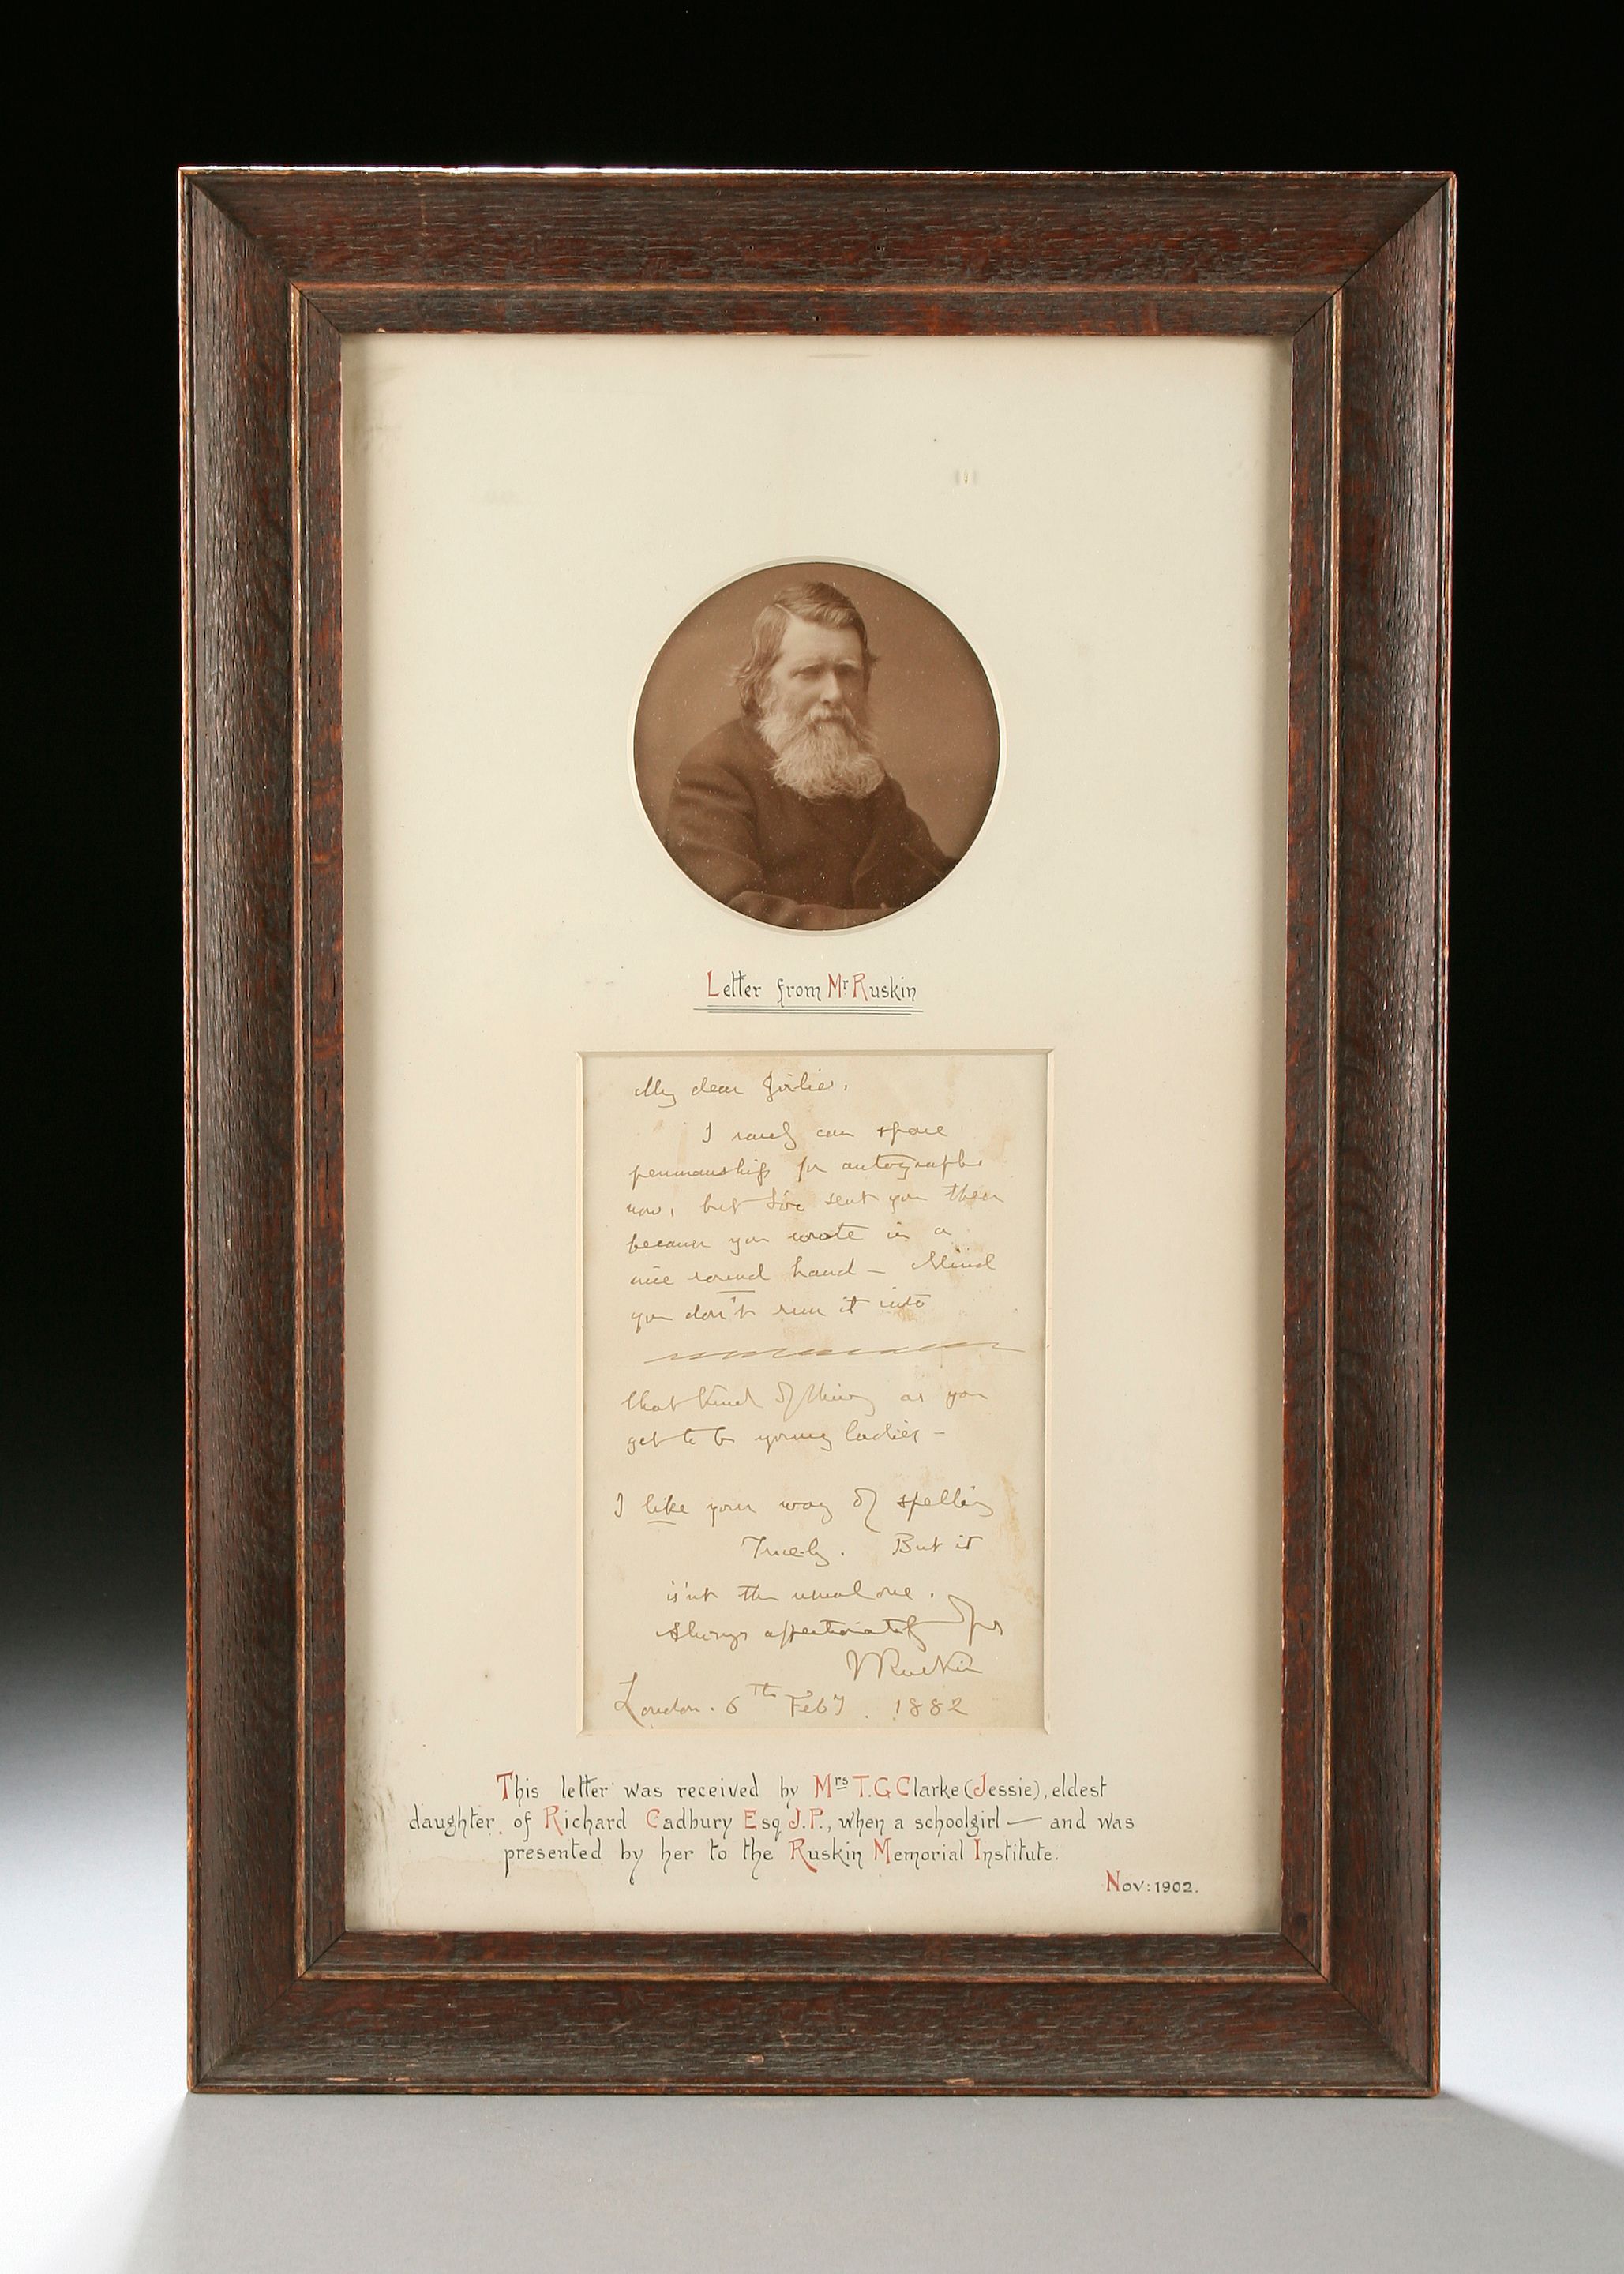 Letter from Mr Ruskin
My dear Girlie,
I rarely can spare
penmanship for autographs
now, but I've sent you them
because you wrote in a
nice round hand – Mind
you don't run it into
that kind of thing as you
get to be young ladies –
I like your way of spelling
Truely. But it
is'nt the usual one.
Always affectionately Yrs
J Ruskin
London. 6th Feby. 1882
This letter was received by Mrs T.G Clarke (Jessie), eldest
daughter of Richard Cadbury Esq J.P., when a schoolgirl — and was
presented by her to the Ruskin Memorial Institute.
Nov: 1902.